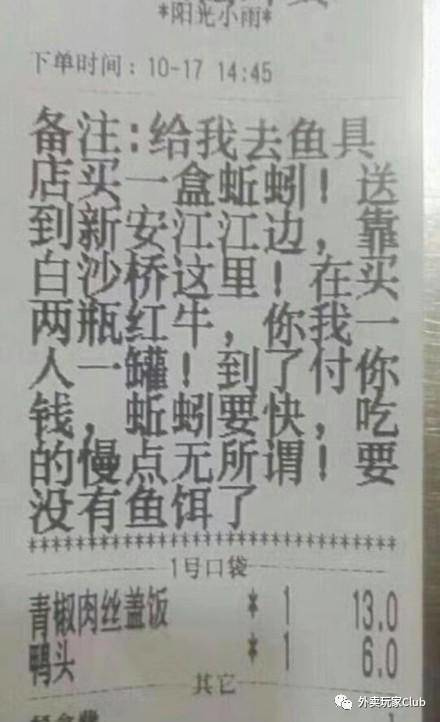 *阳光小雨*
下单时间：10-17 14:45
备注:给我去鱼具
店买一盒蚯蚓！送
到新安江江边，靠
白沙桥这里！在买
两瓶红牛，你我一
人一罐！到了付你
钱，蚯蚓要快，吃
的慢点无所谓！要
没有鱼饵了
************************************
1号口袋
青椒肉丝盖饭 * 1 13.0
鸭头 * 1 6.0
其它
外卖玩家Club